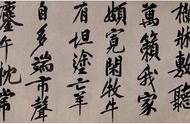 敷聽
萬籟我家
頗寛閑牧牛
有坦塗亡羊
自多端市聲
鏖午枕常